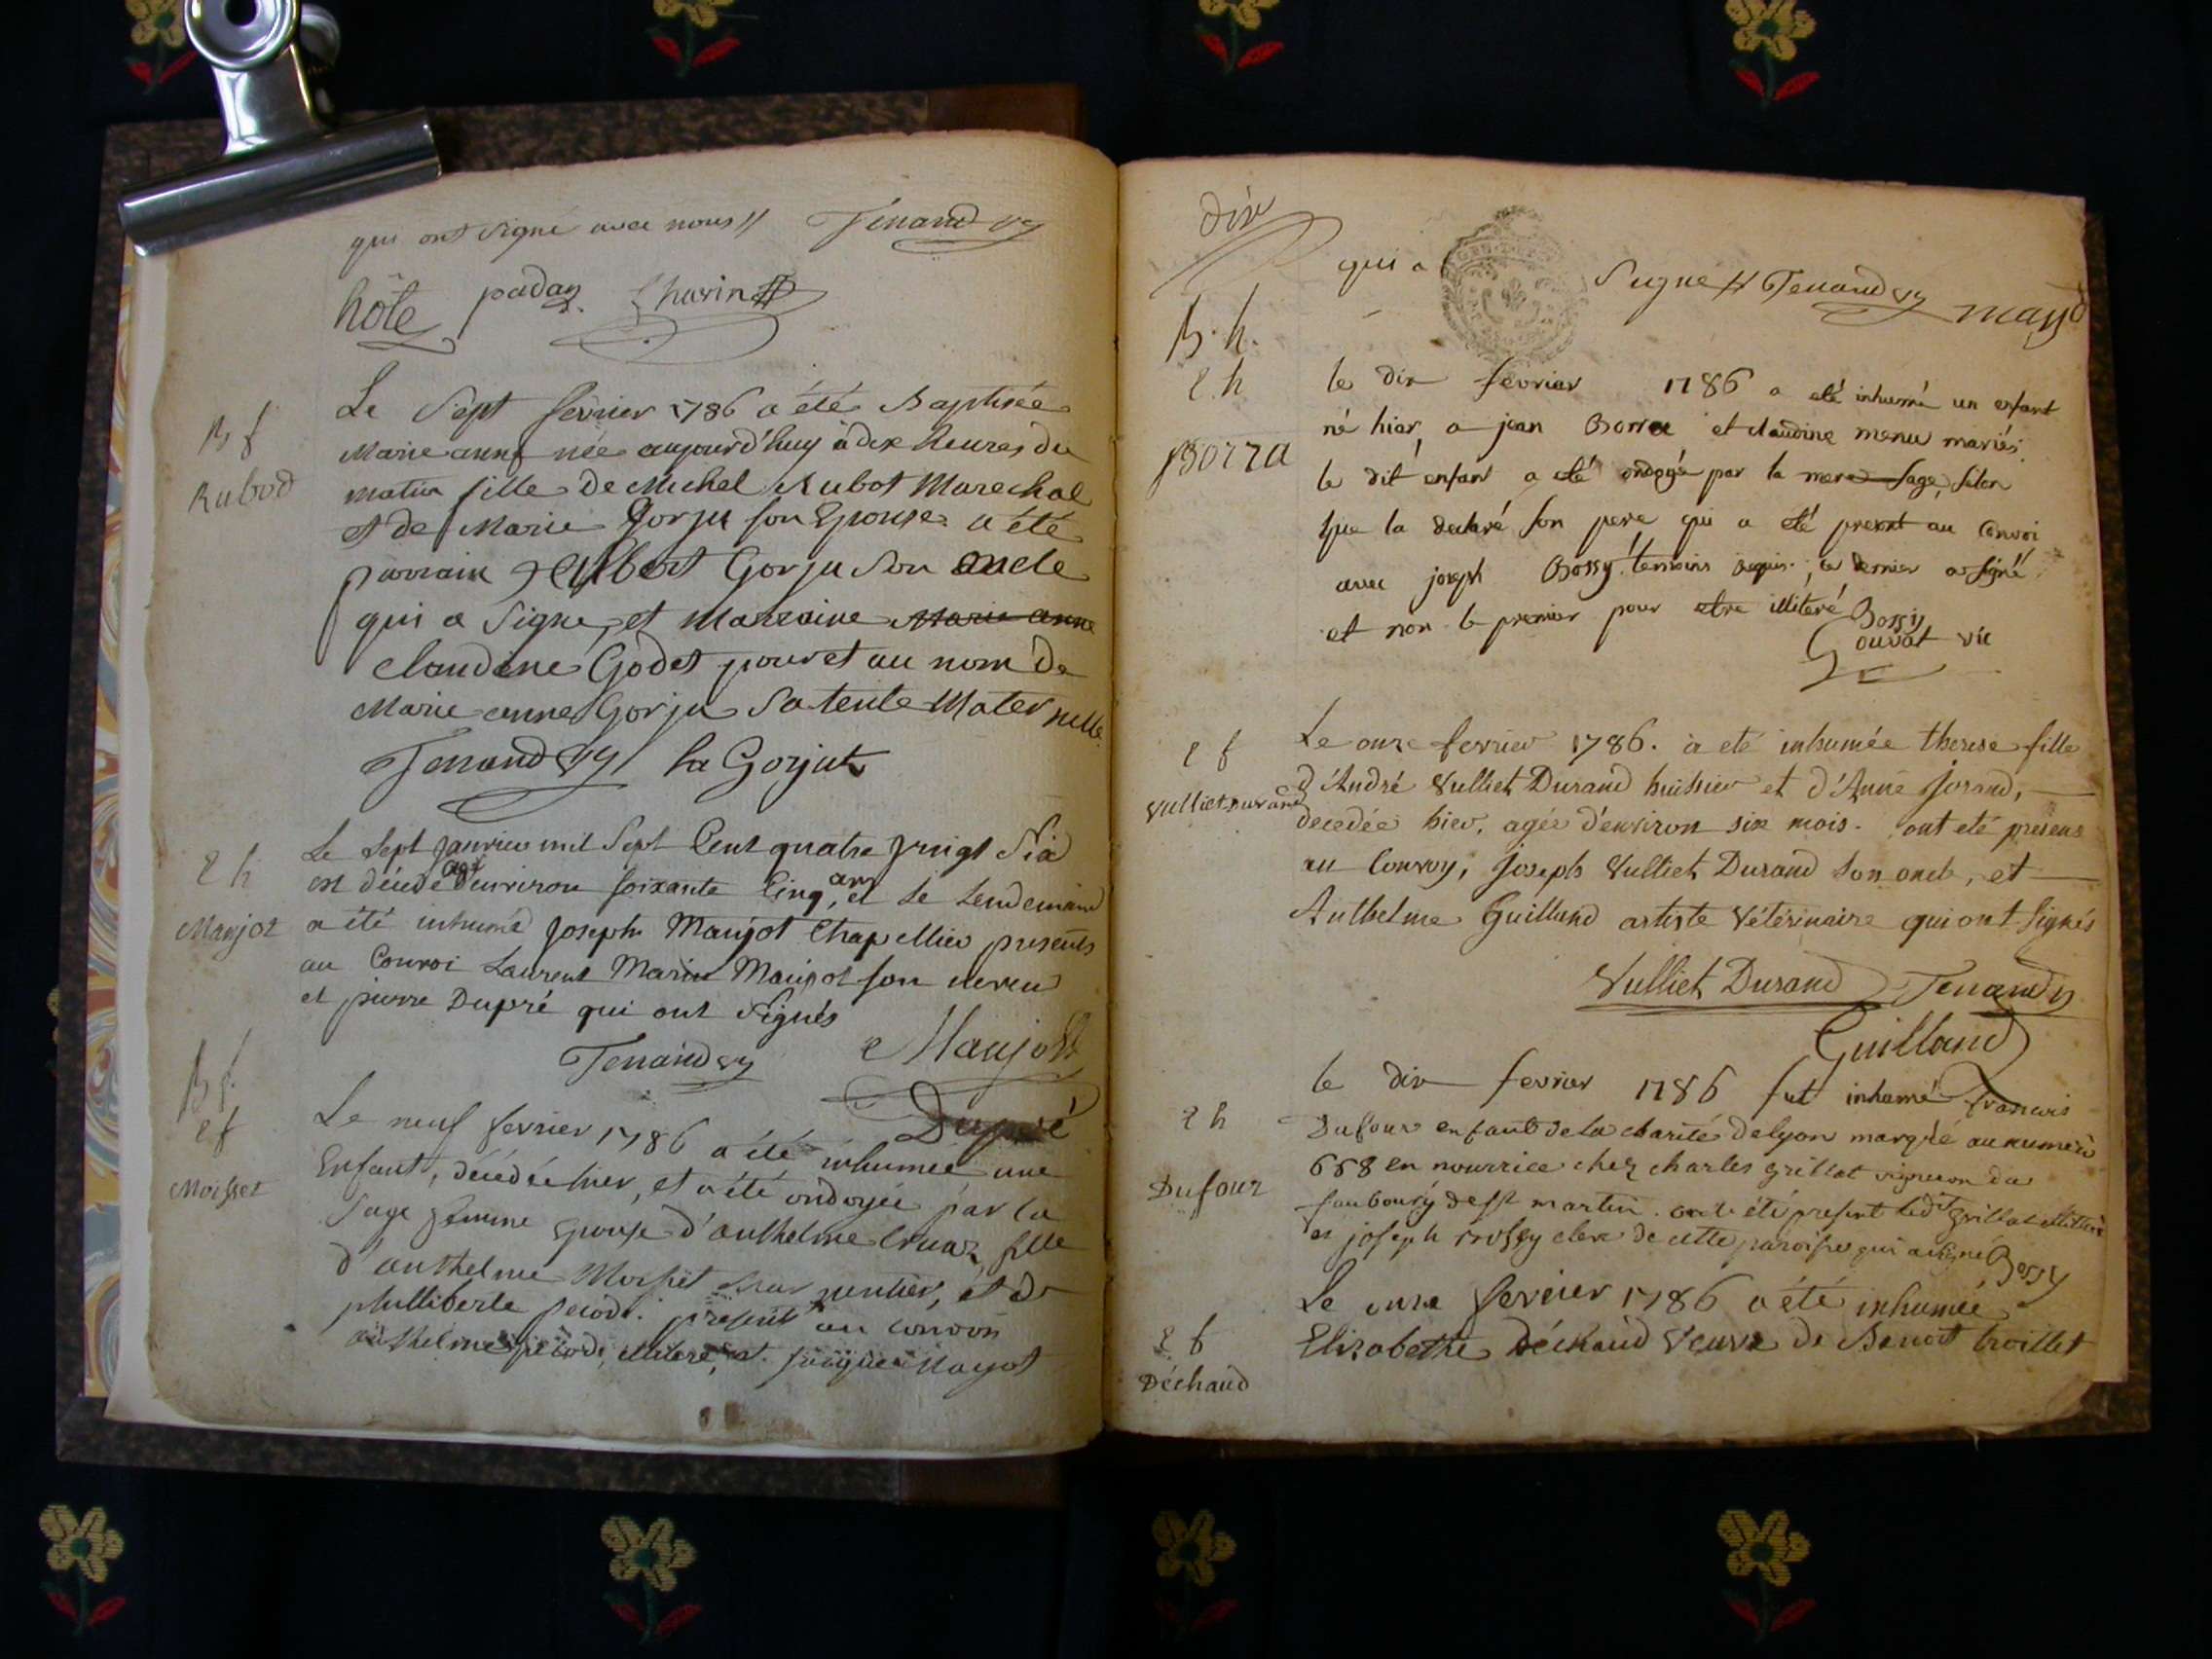 qui ont signé avec nous // Tenand vy
hôte padey
B f
Rubod
Le sept fevrier 1786 a été Baptisée
Marie anne née aujourd'huy à dix heures du
matin fille De Michel Rubot Marechal
et de Marie Gorju son Epouse a été
parrain Gorju son oncle
qui a signé, et Marraine Marie anne
claudine Godet pour et au nom de
Marie anne Gorju sa tente Maternelle.
Tenand vy la Gorjut
E h
Manjot
Le sept janvier mil sept Cent quatre vingt six
est décédé agé d'environ soixante Cinq ans, et le Lendemain
a été inhumé Joseph Manjot Chapellier presents
au Convoi Laurent Marin Manjot son neveu
et pierre Dupré qui ont signés
Tenand vy Manjot
Dupré
B f.
E f
Moisset
Le neuf fevrier 1786 a été inhumée une
Enfant, décédée hier, et a été ondoyée par la
sage femme Epouse d'anthelme fille
d'anthelme Moisset rentier, et de
philliberte pecod. présent au convoi
anthelme pecod, illiteré, et
dix
qui a signé // Tenand vy
B. h.
E. h
Borra
le dix fevrier 1786 a eté inhumé un enfant
né hier, a jean Borra et claudine menu mariés.
le dit enfant a eté ondoyé par la mere sage, selon
que la declaré son pere qui a eté present au convoi
avec joseph Bossy. temoins requis; ce dernier a signé
et non le premier pour etre illiteré Bossy
Gouvat vic
E f
Vulliet durand
Le onze fevrier 1786. a eté inhumée therese fille
d'André Vulliet Durand huissier et d'Anne Jorand,
decedée hier, agée d'environ six mois. ont eté présens
au Convoy, Joseph Vulliet Durand son oncle, et
Anthelme Guilland artiste Vétérinaire qui ont signés
Vulliet Durand Tenand vy
Guilland
E h
Dufour
le dix fevrier 1786 fut inhumé francois
Dufour enfant de la charité de lyon marqué au numero
658 en nourrice chez charles grillat vigneron du
faubourg de st martin. ont été present ledt grillat illiteré
et joseph bossy clerc de cette paroisse qui a signé Bossy
E f
Déchaud
Le onze fevrier 1786 a été inhumée
Elizabethe Déchaud veuve de Benoit troillet